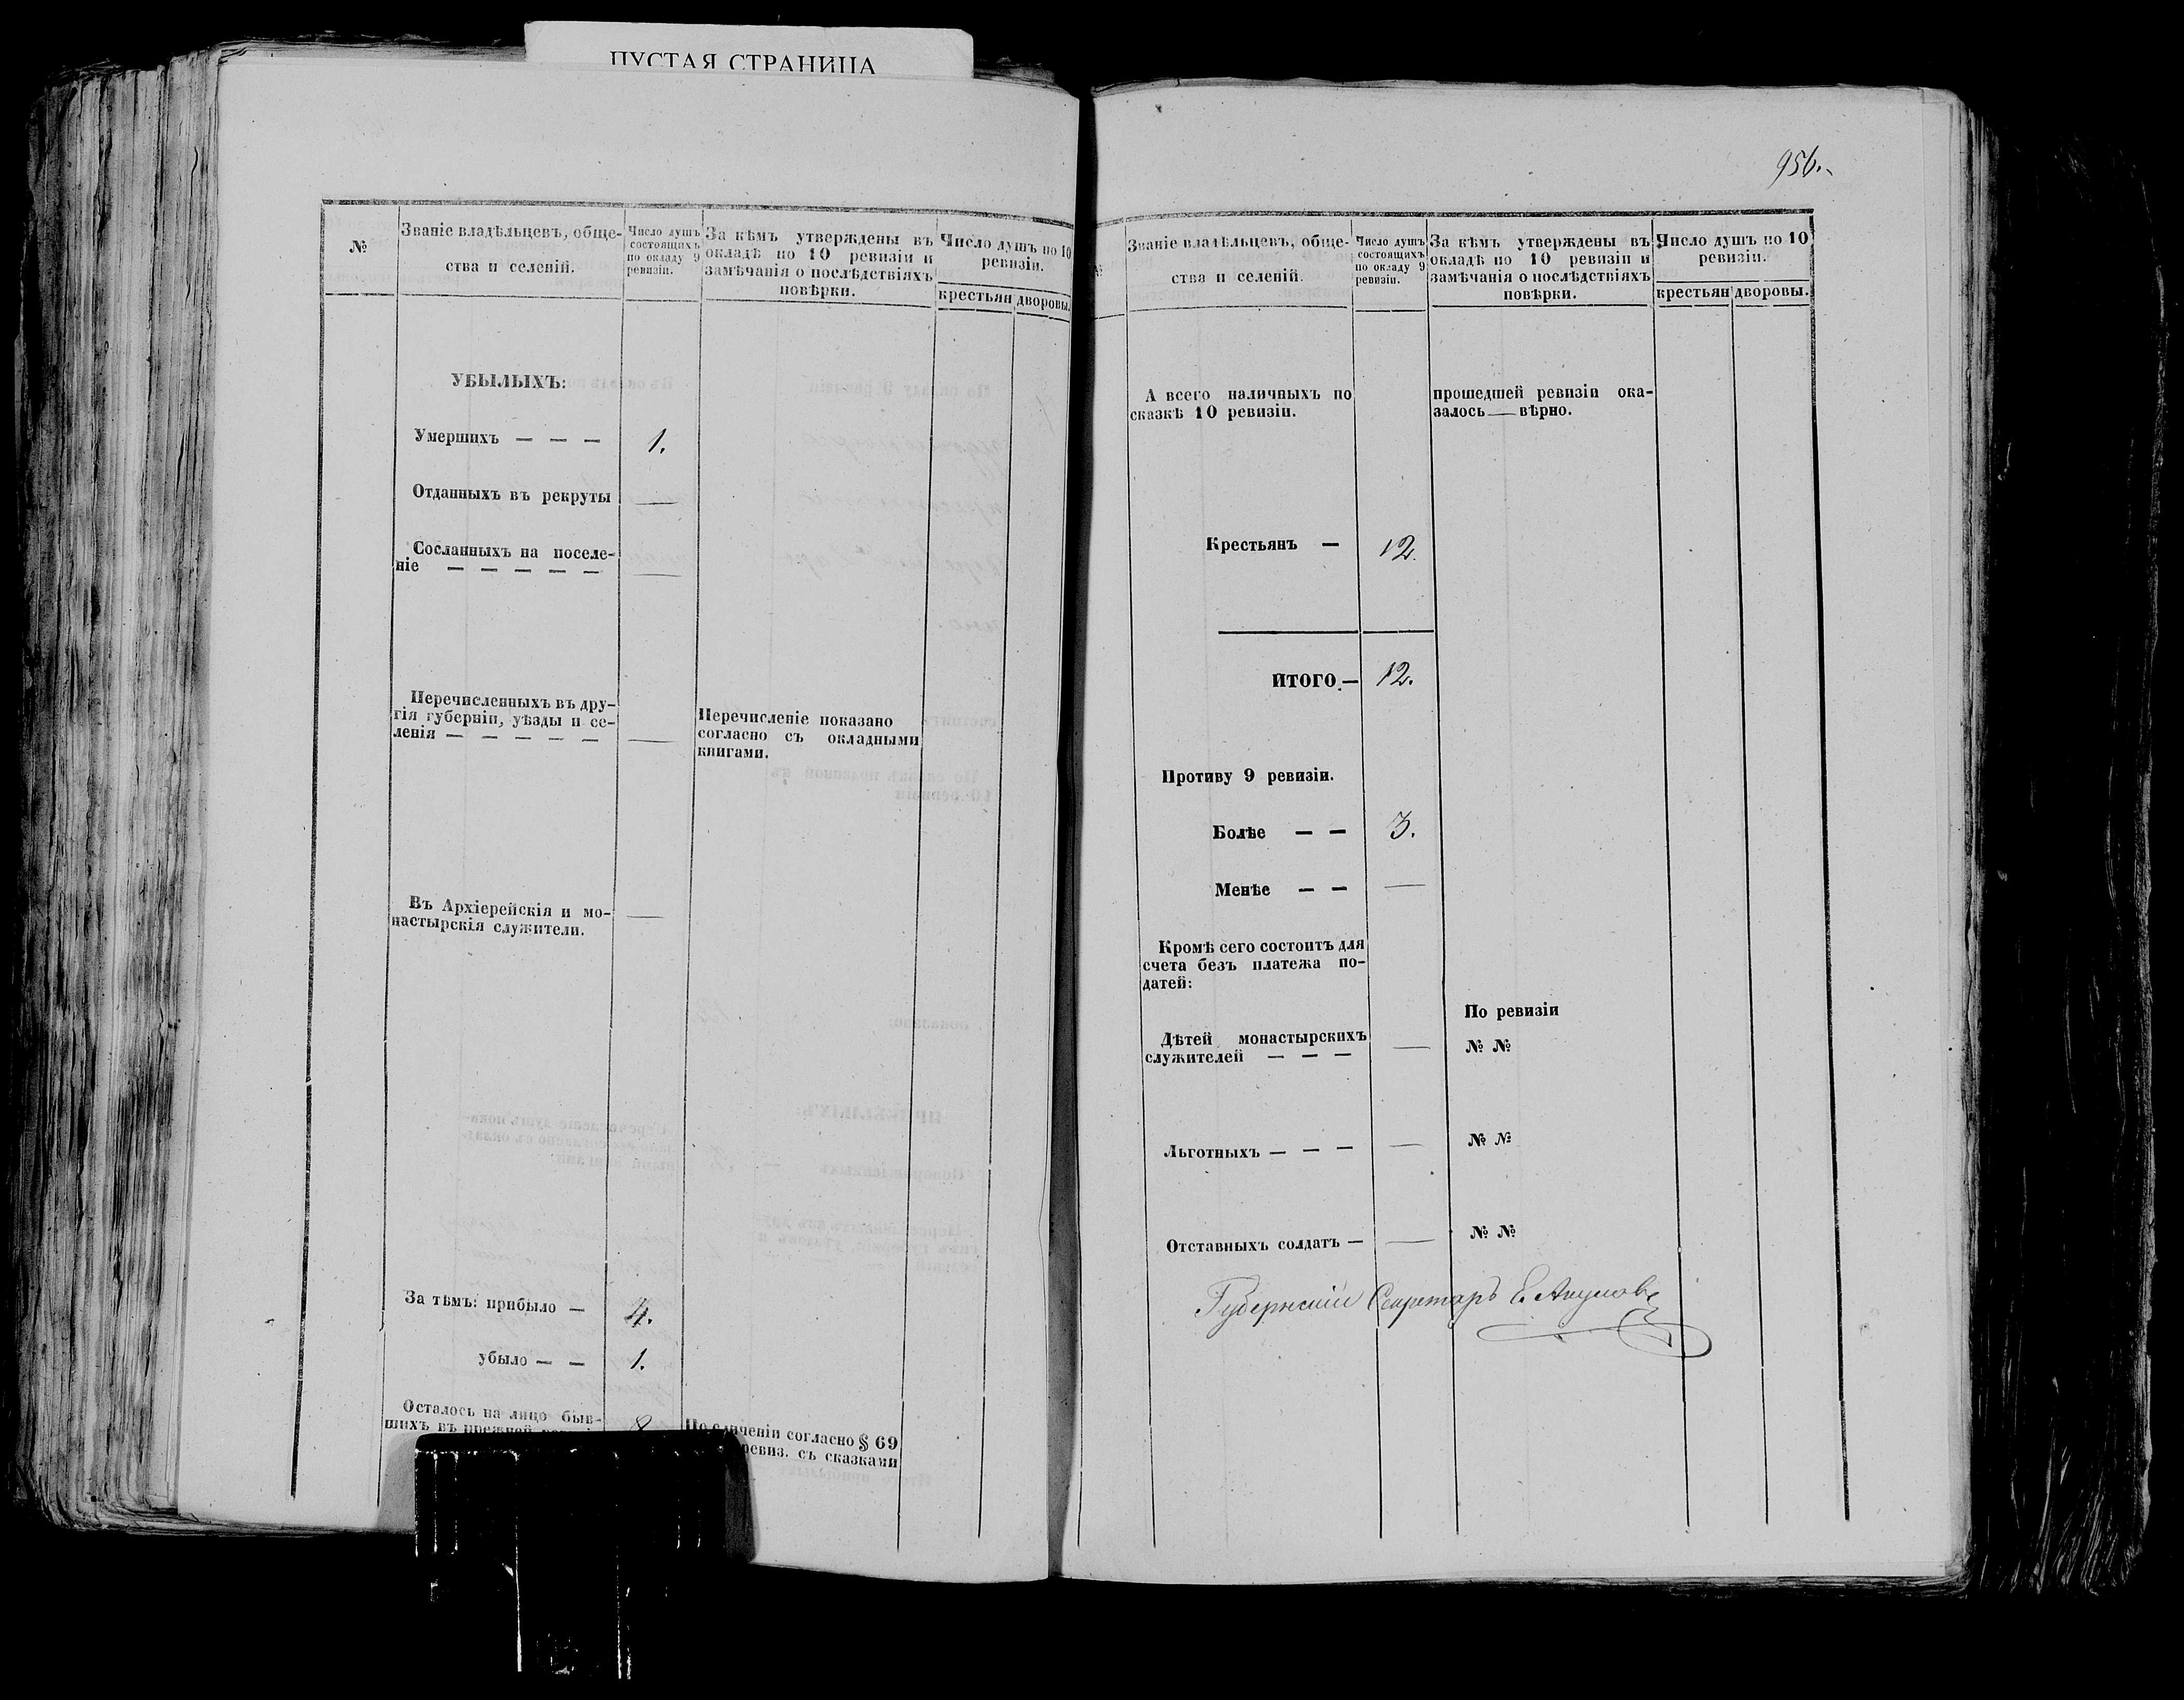 ПУСТАЯ СТРАНИЦА
№
Званіе владѣльцевъ, обще-
ства и селеній.
Число душъ
состоящихъ
по окладу 9
ревизіи.
За кѣмъ утверждены въ
окладѣ по 10 ревизіи и
замѣчанія о послѣдствіяхъ
повѣрки.
Число душъ по 10
ревизіи.
крестьян
дворовы.
УБЫЛЫХЪ:
Умершихъ — — — 1.
Отданныхъ въ рекруты —
Сосланныхъ на поселе-
ніе — — — — — —
Перечисленныхъ въ дру-
гія губерніи, уѣзды и се-
ленія — — — — — —
Перечисленіе показано
согласно съ окладными
книгами.
Въ Архіерейскія и мо- —
настырскія служители.
За тѣмъ: прибыло — 4.
убыло — — 1.
Осталось на лицо быв- 8
шихъ въ прежней
По сличеніи согласно § 69
ревиз. съ сказками
956.
Званіе владѣльцевъ, обще-
ства и селеній.
Число душъ
состоящихъ
по окладу 9
ревизіи.
За кѣмъ утверждены въ
окладѣ по 10 ревизіи и
замѣчанія о послѣдствіяхъ
повѣрки.
Число душъ по 10
ревизіи.
крестьян
дворовы.
А всего наличныхъ по
сказкѣ 10 ревизіи.
прошедшей ревизіи ока-
залось — вѣрно.
Крестьянъ — 12.
ИТОГО.— 12.
Противу 9 ревизіи.
Болѣе — — 3.
Менѣе — — —
Кромѣ сего состоитъ для
счета безъ платежа по-
датей:
По ревизіи
Дѣтей монастырскихъ
служителей — — — —
№ №
Льготныхъ — — — —
№ №
Отставныхъ солдатъ — —
№ №
Губернскій Секретарь Е. Акуловъ